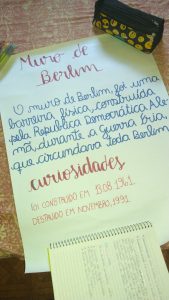 Muro de
Berlim
O muro de Berlim, foi uma
barreira física, construída
pela República Democrática Ale-
mã, durante a Guerra fria,
que circundava toda Berlim
curiosidades
foi CONSTRUÍDO EM 13.08.1961.
DESTRUÍDO EM NOVEMBRO, 1991